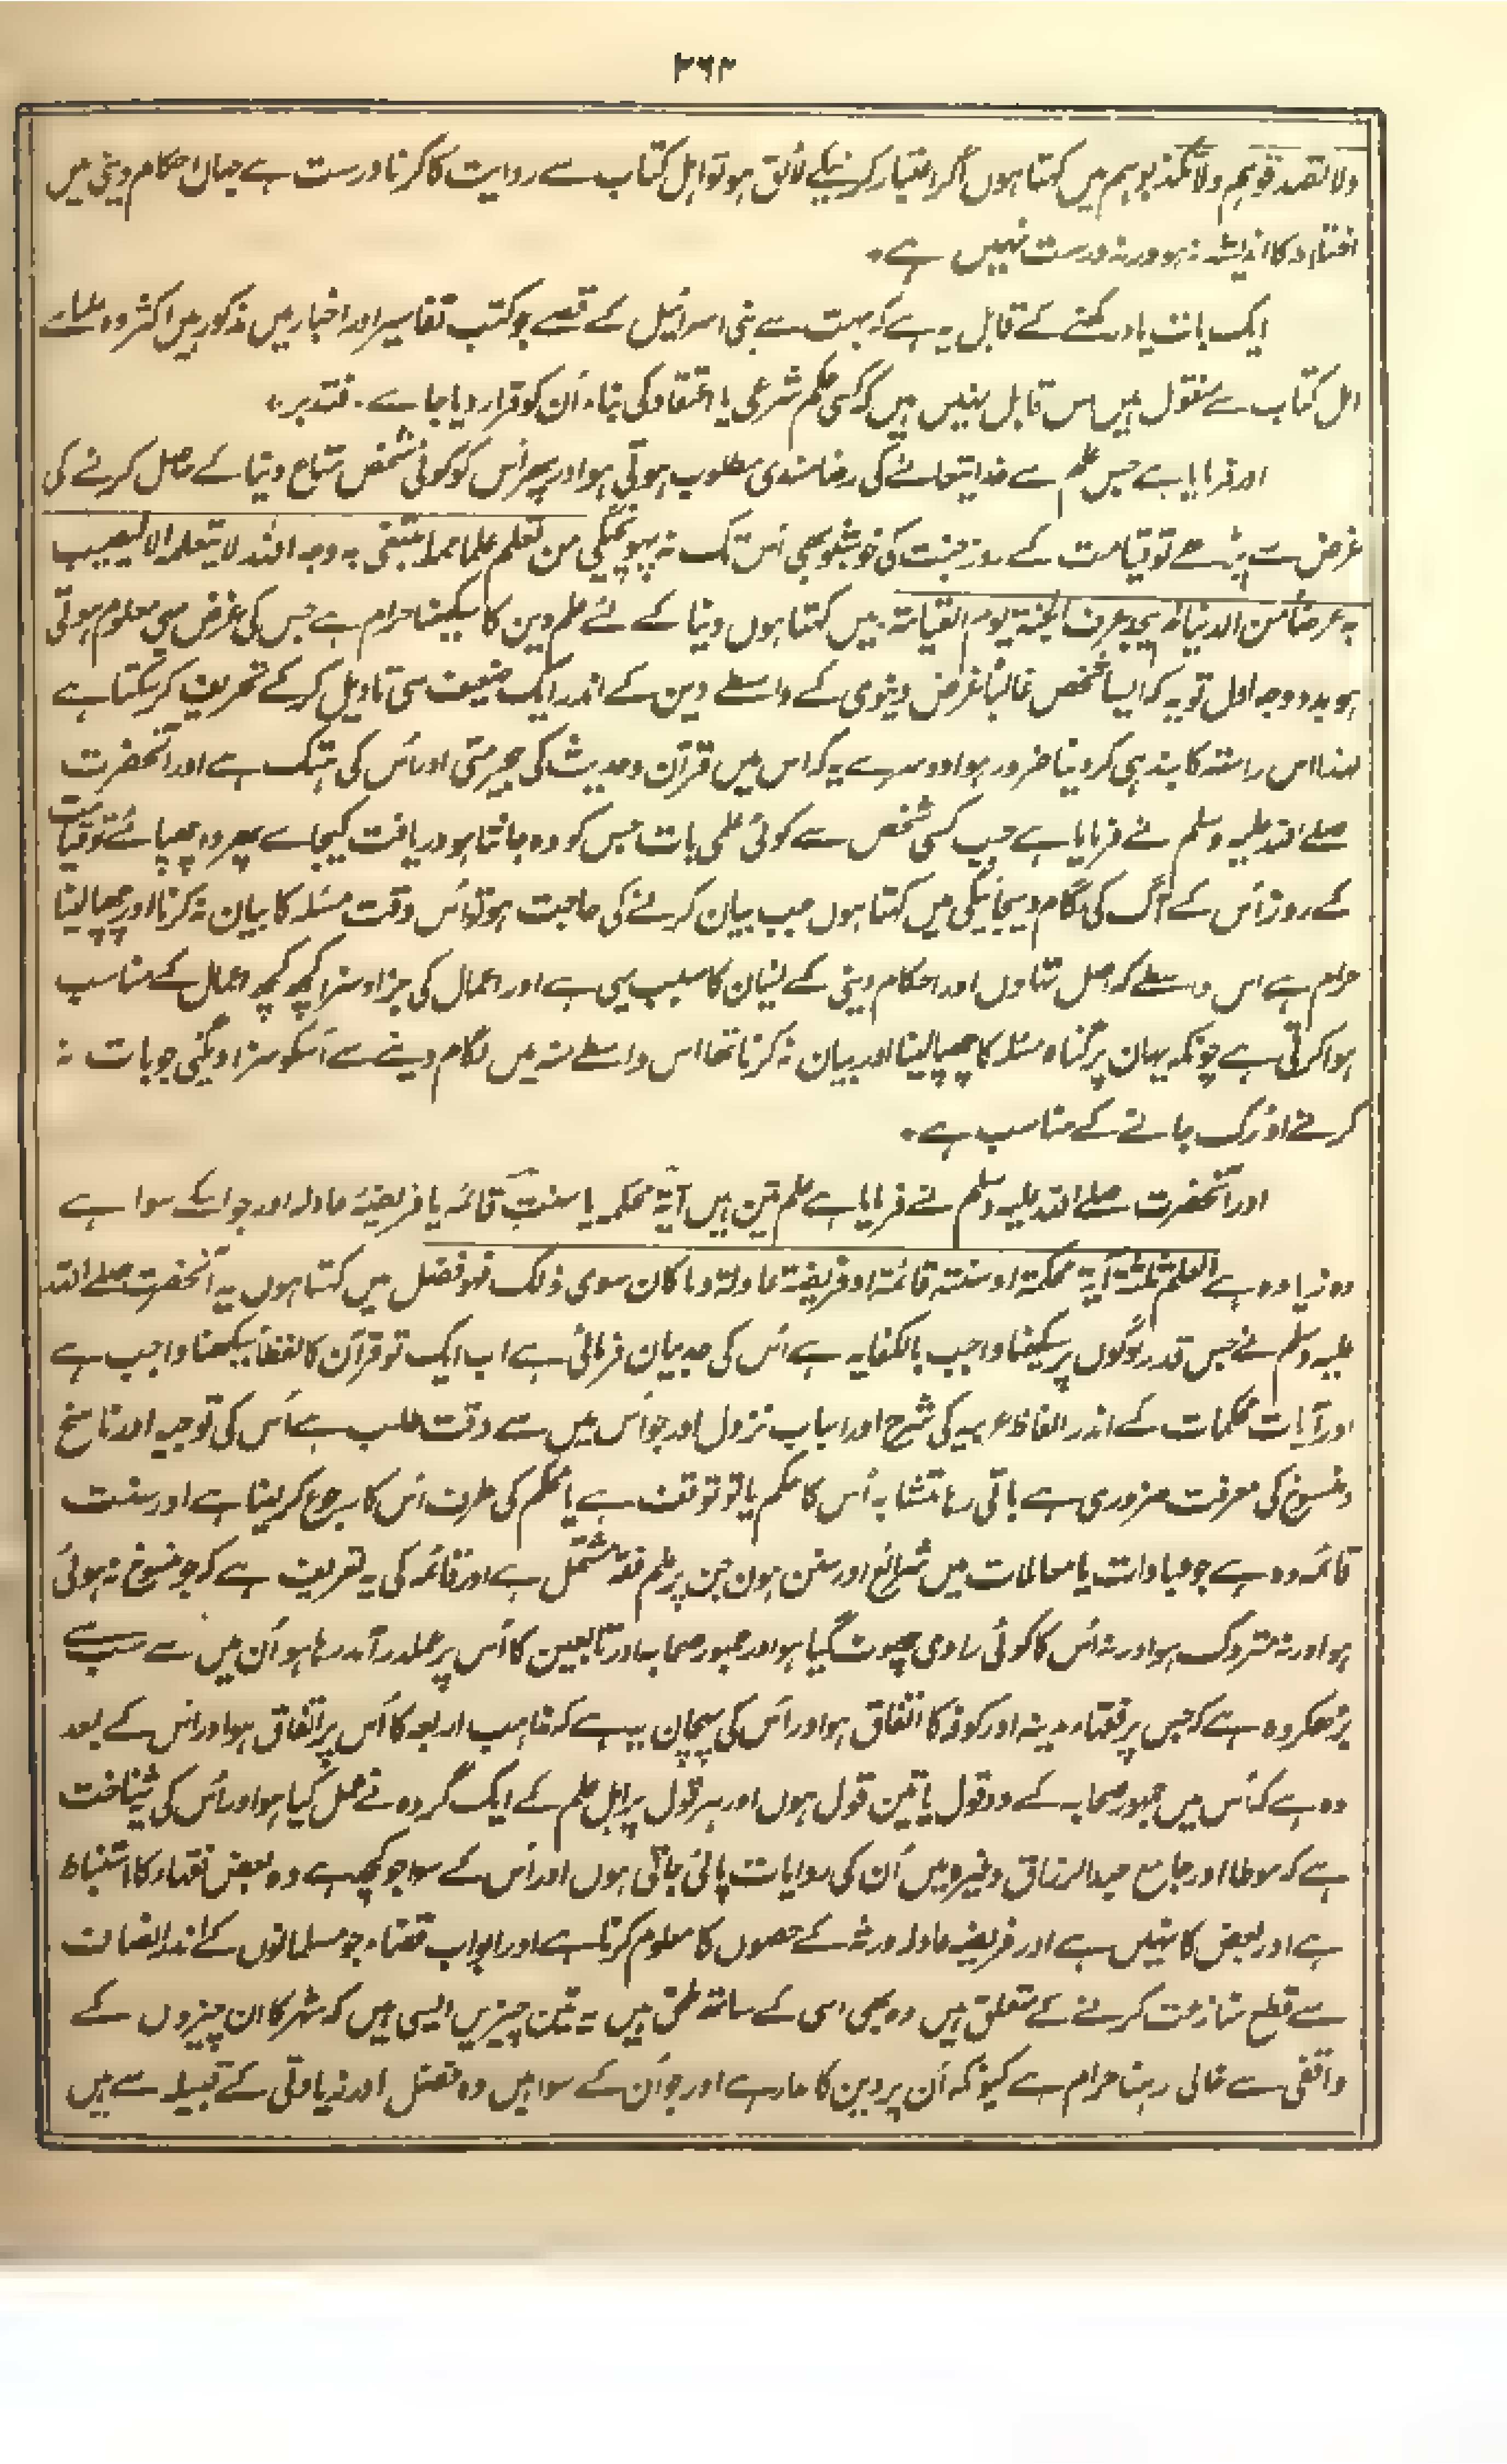 ۲۶۳
ولا تصدقوہم ولا تکذبوہم میں کہتا ہوں اگر اعتبار کرنیکے لائق ہو تو اہل کتاب سے روایت کا کرنا درست ہے جہاں احکام دینی میں
اختلاط کا اندیشہ نہ ہو ورنہ درست نہیں ہے۔
ایک بات یاد رکھنے کے قابل یہ ہے کہ بہت سے بنی اسرائیل کے قصے جو کتب تفاسیر اور اخبار میں مذکور ہیں اکثر وہ علمائے
اہل کتاب سے منقول ہیں اس قابل نہیں ہیں کہ کسی حکم شرعی یا اعتقاد کی بناء اُن کو قرار دیا جاے۔ فتدبر۔
اور فرمایا ہے جس علم سے خدایتعالے کی رضامندی مطلوب ہوتی ہو اور پھر اُس کو کوئی شخص متاع دنیا کے حاصل کرنے کی
غرض سے پڑھے تو قیامت کے روز جنت کی خوشبو بھی اُس تک نہ پہونچیگی من تعلم علما مما یبتغی بہ وجہ اللہ لا یتعلمہ الا لیصیب
بہ عرضا من الدنیا لم یجد عرف الجنۃ یوم القیامۃ میں کہتا ہوں دنیا کے لئے علم دین کا سیکھنا حرام ہے جس کی غرض یہی معلوم ہوتی
ہو بدو وجہ اول تو یہ کہ ایسا شخص غالبًا غرض دینوی کے واسطے دین کے اندر ایک ضعیف سی تاویل کرکے تحریف کرسکتا ہے
لہذا اس راستہ کا بند ہی کر دینا ضرور ہوا دوسرے یہ کہ اس میں قرآن و حدیث کی بیحرمتی اور اُس کی ہتک ہے اور آنحضرت
صلے اللہ علیہ وسلم نے فرمایا ہے جب کسی شخص سے کوئی علمی بات جس کو وہ جانتا ہو دریافت کیجاے پھر وہ چھپائے تو قیامت
کے روز اُس کے آگ کی لگام دیجائیگی میں کہتا ہوں جب بیان کرنے کی حاجت ہو تو اُس وقت مسئلہ کا بیان نہ کرنا اور چھپا لینا
حرام ہے اس واسطے کہ اصل تہاون اور احکام دینی کے نسیان کا سبب یہی ہے اور اعمال کی جزا و سزا کچھ کچھ اعمال کے مناسب
ہوا کرتی ہے چونکہ یہاں پر گناہ مسئلہ کا چھپالینا اور بیان نہ کرنا تھا اس واسطے منہ میں لگام دینے سے اُسکو سزا دیگئی جو بات نہ
کرنے اور رُک جانے کے مناسب ہے۔
اور آنحضرت صلے اللہ علیہ وسلم نے فرمایا ہے علم تین ہیں آیۃ محکمہ یا سنت قائمہ یا فریضۂ عادلہ اور جو اسکے سوا ہے
وہ زیادہ ہے العلم ثلثۃ آیۃ محکمۃ او سنتہ قائمۃ او فریضتہ عادلۃ وما کان سوی ذلک فہو فضل میں کہتا ہوں یہ آنحضرت صلے اللہ
علیہ وسلم نے جس قدر لوگوں پر سیکھنا واجب بالکفایہ ہے اُس کی حد بیان فرمائی ہے اب ایک تو قرآن کا لفظًا سیکھنا واجب ہے
اور آیات محکمات کے اندر الفاظ عربیہ کی شرح اور اسباب نزول اور جو اُس میں سے دقت طلب ہے اُس کی توجیہ اور ناسخ
و منسوخ کی معرفت ضروری ہے باقی رہا متشابہ اُس کا حکم یا تو توقف ہے یا محکم کی طرف اُس کا رجوع کر لینا ہے اور سنت
قائمہ وہ ہے جو عبادات یا معاملات میں شرائع اور سنن ہون جن پر علم فقہ مشتمل ہے اور قائمہ کی یہ تعریف ہے کہ جو منسوخ نہ ہوئی
ہو اور نہ متروک ہو اور نہ اُس کا کوئی راوی چھوٹ گیا ہو اور جمہور صحابہ اور تابعین کا اُس پر عملدرآمد رہا ہو اُن میں سے سب سے
بڑھکر وہ ہے کہ جس پر فقہاء مدینہ اور کوفہ کا اتفاق ہو اور اُس کی پہچان یہ ہے کہ مذاہب اربعہ کا اُس پر اتفاق ہو اور اُس کے بعد
وہ ہے کہ اُس میں جمہور صحابہ کے دو قول یا تین قول ہوں اور ہر قول پر اہل علم کے ایک گروہ نے عمل کیا ہو اور اُس کی شناخت
ہے کہ موطا اور جامع عبدالرزاق وغیرہ میں اُن کی روایات پائی جاتی ہوں اور اُس کے سوا جو کچھ ہے وہ بعض فقہاء کا استنباط
ہے اور بعض کا نہیں ہے اور فریضہ عادلہ ورثہ کے حصوں کا معلوم کرنا ہے اور ابواب قضاء جو مسلمانوں کے اندر انصاف
سے قطع منازعت کرنے کے متعلق ہیں وہ بھی اسی کے ساتھ ملحق ہیں یہ تین چیزیں ایسی ہیں کہ شہر کا ان چیزوں کے
واقفی سے خالی رہنا حرام ہے کیونکہ اُن پر دین کا مدار ہے اور جو اُن کے سوا ہیں وہ فضل اور زیادتی کے قبیلہ سے ہیں